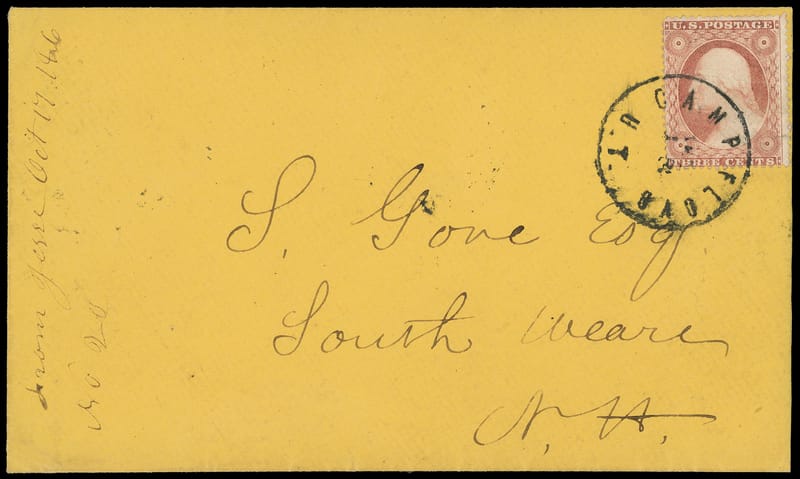 U.S. POSTAGE
THREE CENTS
CAMP FLOYD U.T.
S. Gove Esq
South Weare
N.H.
From Jesse Oct 17.
No 20